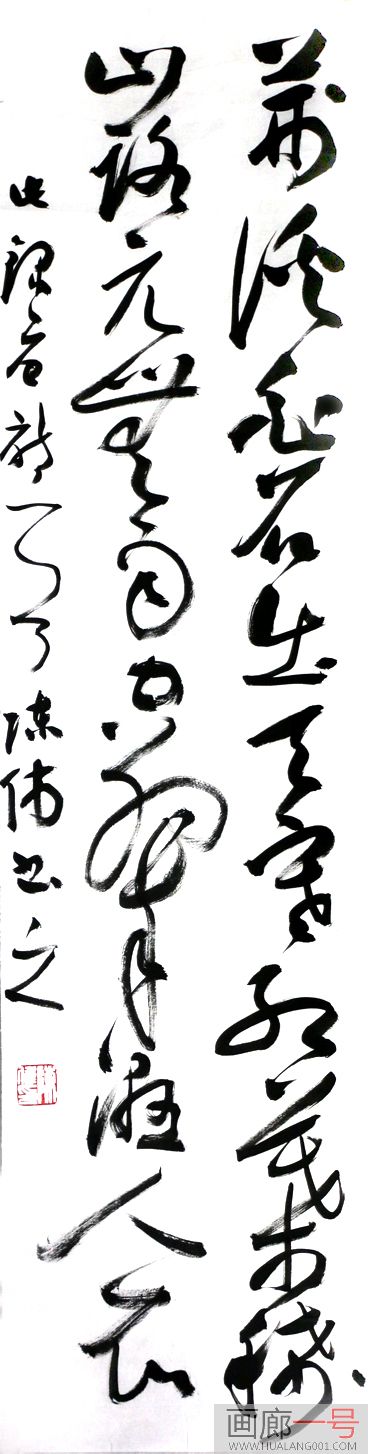 荆溪白石出天寒紅葉稀
山路元無雨空翠濕人衣
此録唐詩一首陈伟书之
画廊一号
WWW.HUALANG001.COM